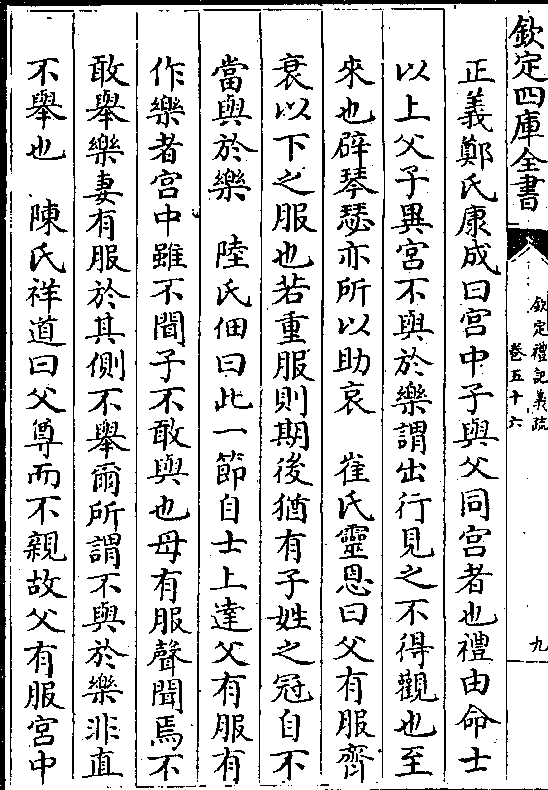 欽定四庫全書
欽定禮記義疏
卷五十六
九
正義鄭氏康成曰宮中子與父同宮者也禮由命士
以上父子異宮不與於樂謂出行見之不得觀也至
來也辟琴瑟亦所以助哀　崔氏靈恩曰父有服齊
衰以下之服也若重服則期後猶有子姓之冠自不
當與於樂　陸氏佃曰此一節自士上達父有服有
作樂者宮中雖不聞子不敢與也母有服聲聞焉不
敢舉樂妻有服於其側不舉爾所謂不與於樂非直
不舉也　陳氏祥道曰父尊而不親故父有服宮中